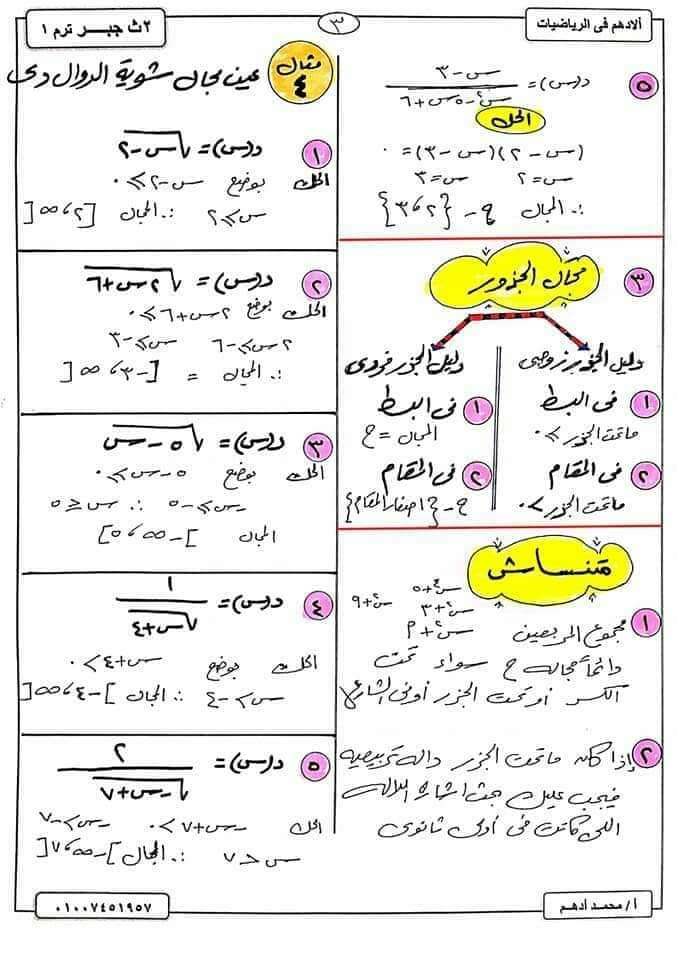 الادهم فى الرياضيات
٣
٢ث جبر ترم ١
٥ د(س) = (س - ٣)/(س٢ - ٥س + ٦)
الحل
(س - ٢)(س - ٣) = ٠
س = ٢ س = ٣
∴ المجال ح - {٢، ٣}
٣ مجال الجذور
دليل الجذر زوجى
١ فى البسط
ماتحت الجذر ≥ ٠
٢ فى المقام
ماتحت الجذر > ٠
دليل الجذر فردى
١ فى البسط
المجال = ح
٢ فى المقام
ح - {اصفار المقام}
متنساش
س٢ + ٤ + ٥
س٢ + ٣ س٢ + ٩
١ مجموع المربعين س٢ + م
دائماً مجاله ح سواء تحت
الكسر او تحت الجذر أو فى الشارع
٢ إذا كان ماتحت الجذر دالة تربيعيه
فيجب عليك بحث اشارة الدالة
اللى كانت فى أولى ثانوى
مثال ٤ عين مجال شوية الدوال دى
١ د(س) = √(س - ٢)
الحل بوضع س - ٢ ≥ ٠
س ≥ ٢ ∴ المجال [٢، ∞[
٢ د(س) = √(٢س + ٦)
الحل بوضع ٢س + ٦ ≥ ٠
٢س ≥ -٦ س ≥ -٣
∴ المجال = [-٣، ∞[
٣ د(س) = √(٥ - س)
الحل بوضع ٥ - س ≥ ٠
-س ≥ -٥ ∴ س ≤ ٥
المجال ]-∞، ٥]
٤ د(س) = ١/√(س + ٤)
الحل بوضع س + ٤ > ٠
س > -٤ ∴ المجال ]-٤، ∞[
٥ د(س) = ٢/√(-س + ٧)
الحل -س + ٧ > ٠ -س > -٧
س < ٧ ∴ المجال ]-∞، ٧[
أ/ محمد أدهم
٠١٠٠٧٤٥١٩٥٧